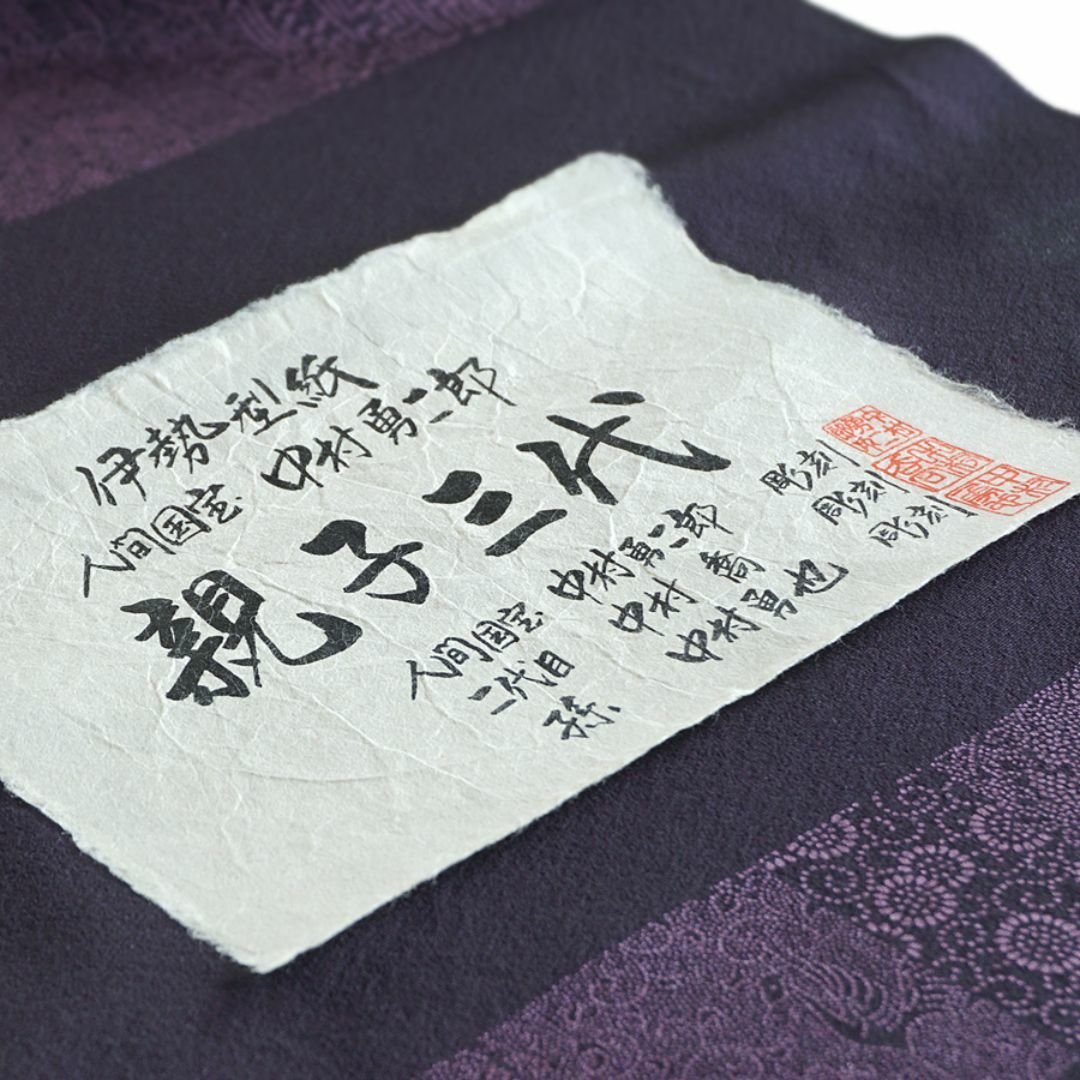 伊勢型紙
人間国宝 中村勇二郎
親子三代
人間国宝 中村勇二郎 彫刻
二代目 中村喬 彫刻
孫 中村勇也 彫刻